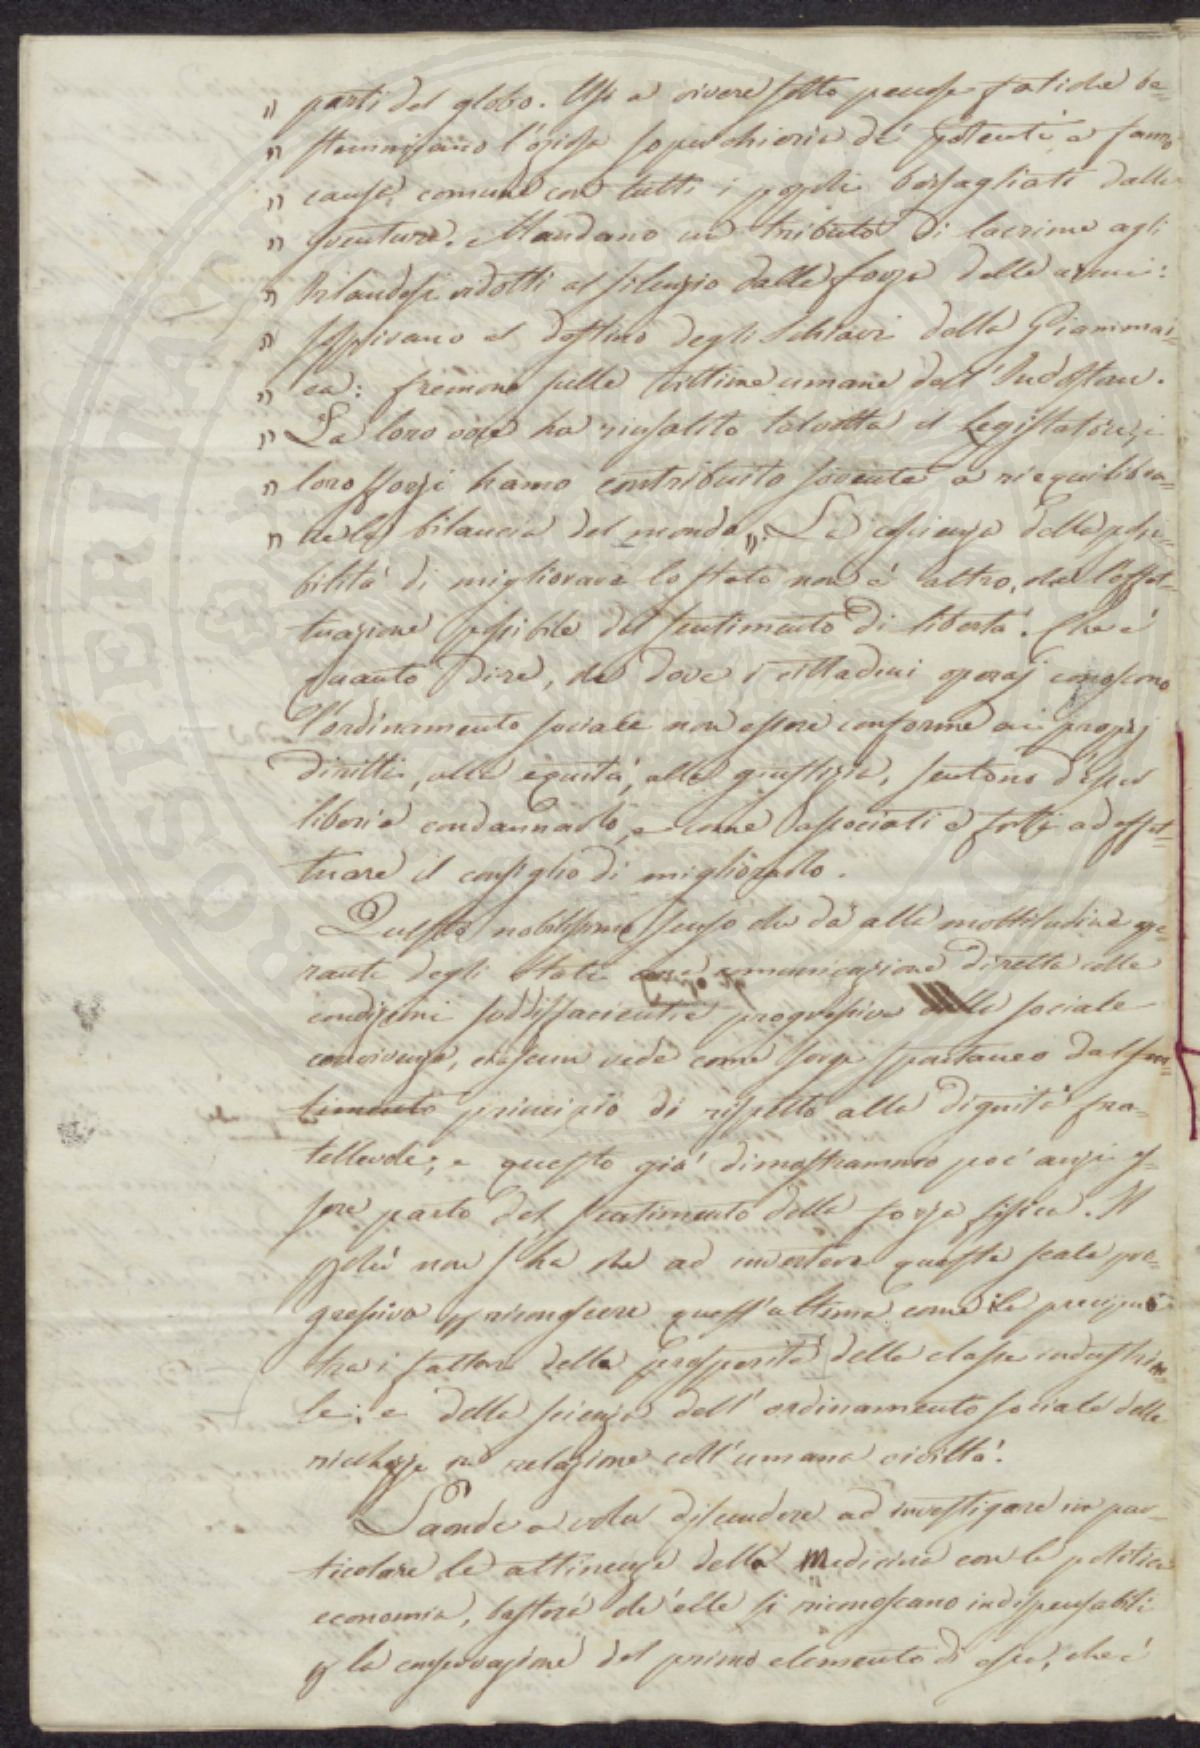 " parti del globo. Usi a vivere sotto penose fatiche be-
" stemmiano l'oziosa soperchieria de' potenti e fanno
" causa comune con tutti i popoli bersagliati dalla
" sventura. Mandano un tributo di lacrime agli
" Irlandesi ridotti al silenzio dalla forza delle armi:
" sospirano al destino degli Schiavi della Giammai-
" ca: fremono sulle vittime umane dell'Indostan.
" La loro voce ha riusalito talvolta il Legislatore, i
" loro sforzi hanno contribuito sovente a riequilibra-
" re la bilancia del mondo". La coscienza della possi-
bilità di migliorare lo stato non è altro, che l'effet-
tuazione possibile del sentimento di libertà. Che è
quanto dire, che dove i cittadini operaj conoscono
l'ordinamento sociale non essere conforme ai proprj
diritti, alla equità, alla giustizia, sentono d'esser
liberi a condannarlo, e come associati e forti ad effet-
tuare il consiglio di migliorarlo.
Questo nobilissimo senso che dà alla moltitudine ope-
rante degli Stati comunicazione diretta colle
condizioni soddisfacienti e progressive alla sociale
convivenza, ciascun vede come sorge spontaneo dal sen-
timento principio di rispetto alla dignità fra-
tellevole; e questo già dimostrammo poc'anzi es-
sere parto del sentimento della forza fisica. Il
perchè non s'ha che ad invertere questa scala pro-
gressiva per riconoscere quest'ultima come la precipua
tra i fattori della prosperità della classe industria-
le; e della scienza dell'ordinamento sociale delle
ricchezze in relazione coll'umana civiltà.
Laonde a voler discendere ad investigare in par-
ticolare le attinenze della Medicina con la politica
economia, basterà ch'elle si riconoscano indispensabili
per la conservazione del primo elemento di essa, che è